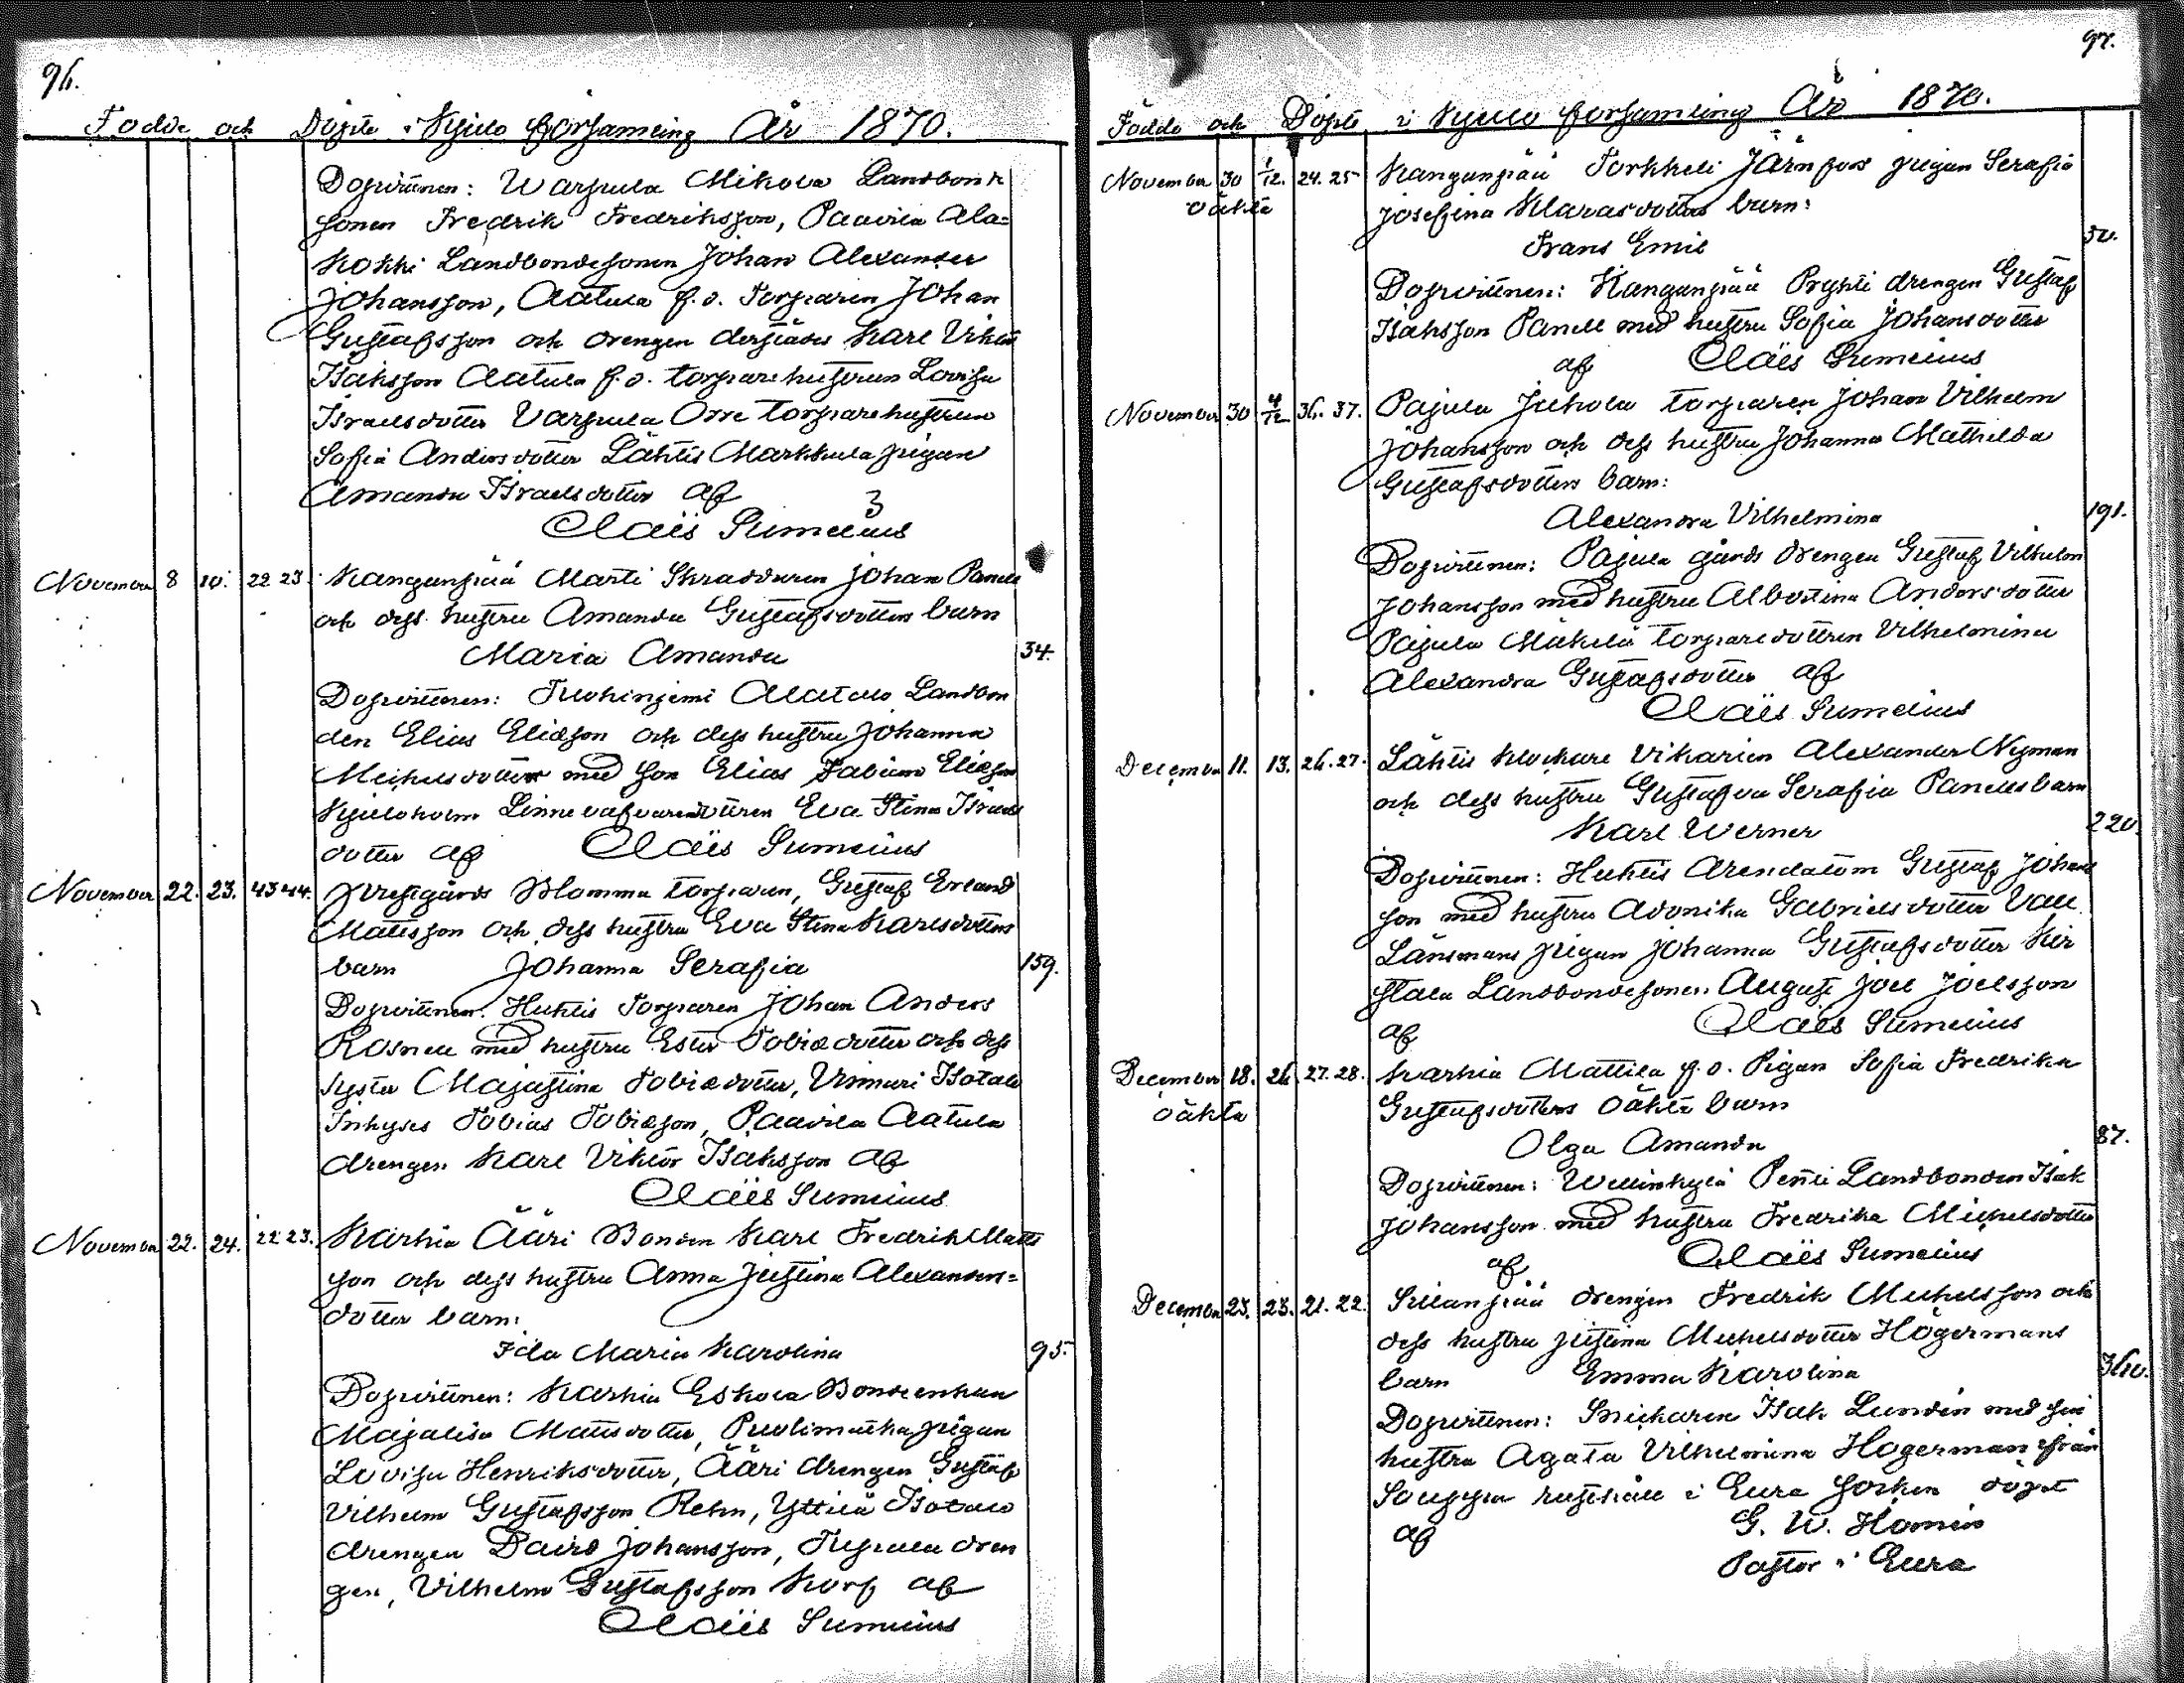 96.
Födde och Döpte i Kjulo församling År 1870.
Dopvittnen: Warpula Mikola Landbonde
sonen Fredrik Fredriksson, Paavila Ala=
Kokki Landbondesonen Johan Alexander
Johansson, Aatula f. d. Torparen Johan
Gustafsson och drengen derstädes Karl Viktor
Isaksson Aatula f. d. torparehustrun Lovisa
Israelsdotter Varpula Orre torparehustrun
Sofia Andersdotter Lähtis Markkula pigan
Amanda Israelsdotter af
Claës Sumelius
November 8 10. 22 23. Kanganpää Martti Skräddaren Johan Panelin
och dess hustru Amanda Gustafsdotters barn
Maria Amanda 34.
Dopvittnen: Tuohiniemi Alatalo Landbon
den Elias Eliasson och dess hustru Johanna
Mickelsdotter med son Elias Fabian Eliasson
Kjuloholm Linnevafvaredottren Eva Stina Israels
dotter af Claës Sumelius
November 22. 23. 43 44. Prestgårds Blomma torparen, Gustaf Erland
Mattsson och dess hustru Eva Stina Karlsdotters
barn Johanna Serafia 159.
Dopvittnen. Huhtis Torparen Johan Anders
Rosnell med hustru Ester Tobiedotter och dess
syster Majastina Tobiædotter, Vinnari Isotalo
Inhyses Tobias Tobiæson, Paavila Aatula
drengen Karl Viktor Isaksson af
Claës Sumelius
November 22. 24. 22 23. Karhia Ääri Bonden Karl Fredrik Matts
son och dess hustru Anna Justina Alexanders=
dotter barn:
Ida Maria Karolina 95.
Dopvittnen: Karhia Eskola Bondeenkan
Majalisa Mattsdotter, Puolimatka pigan
Lovisa Henriksdotter, Ääri drengen Gustaf
Vilhelm Gustafsson Rehn, Yttilä Isotalo
drengen David Johansson, dren
gen, Vilhelm Gustafsson Korf af
Claës Sumelius
97.
Födde och Döpte i Kjulo församling År 1870.
November 30 1/12. 24. 25 Kanganpää Torkkeli Järnfors pigan Serafia
oäkta Josefina Klarasdotters barn:
Frans Emil 50.
Dopvittnen: Kanganpää Prykti drengen Gustaf
Isaksson Panell med hustru Sofia Johansdotter
af Claës Sumelius
November 30 4/12 36. 37. Pajula Juhola torparen Johan Vilhelm
Johansson och dess hustru Johanna Mathilda
Gustafsdotters barn:
Alexandra Vilhelmina 191.
Dopvittnen: Pajula gårds drengen Gustaf Vilhelm
Johansson med hustru Albertina Andersdotter
Pajula Mäkelä torparedottren Vilhelmina
Alexandra Gustafsdotter af
Claës Sumelius
December 11. 13. 26. 27. Lähtis Klockare Vikarien Alexander Nyman
och dess hustru Gustafva Serafia Panells barn
Karl Werner 220.
Dopvittnen: Huhtis Arendatorn Gustaf Johans
son med hustru Adonika Gabrielsdotter Vall
Länsmans pigan Johanna Gustafsdotter Kir
stala Landbondesonen August Joel Joelsson
af Claës Sumelius
December 18. 26. 27. 28. Karhia Mattila f. d. Pigan Sofia Fredrika
oäkta Gustafsdotters oäkta barn
Olga Amanda 87.
Dopvittnen: Wellinkylä Pentti Landbonden Isak
Johansson med hustru Fredrika Mickelsdotter
af Claës Sumelius
December 23. 23. 21. 22. Sillanpää drengen Fredrik Mickelsson och
dess hustru Justina Mickelsdotter Högermans
barn Emma Karolina 360.
Dopvittnen: Snickaren Isak Lundén med sin
hustru Agata Vilhelmina Högerman ifrån
Souppa rusthåll i Eura socken döpt
af G. W. Homén
Pastor i Eura